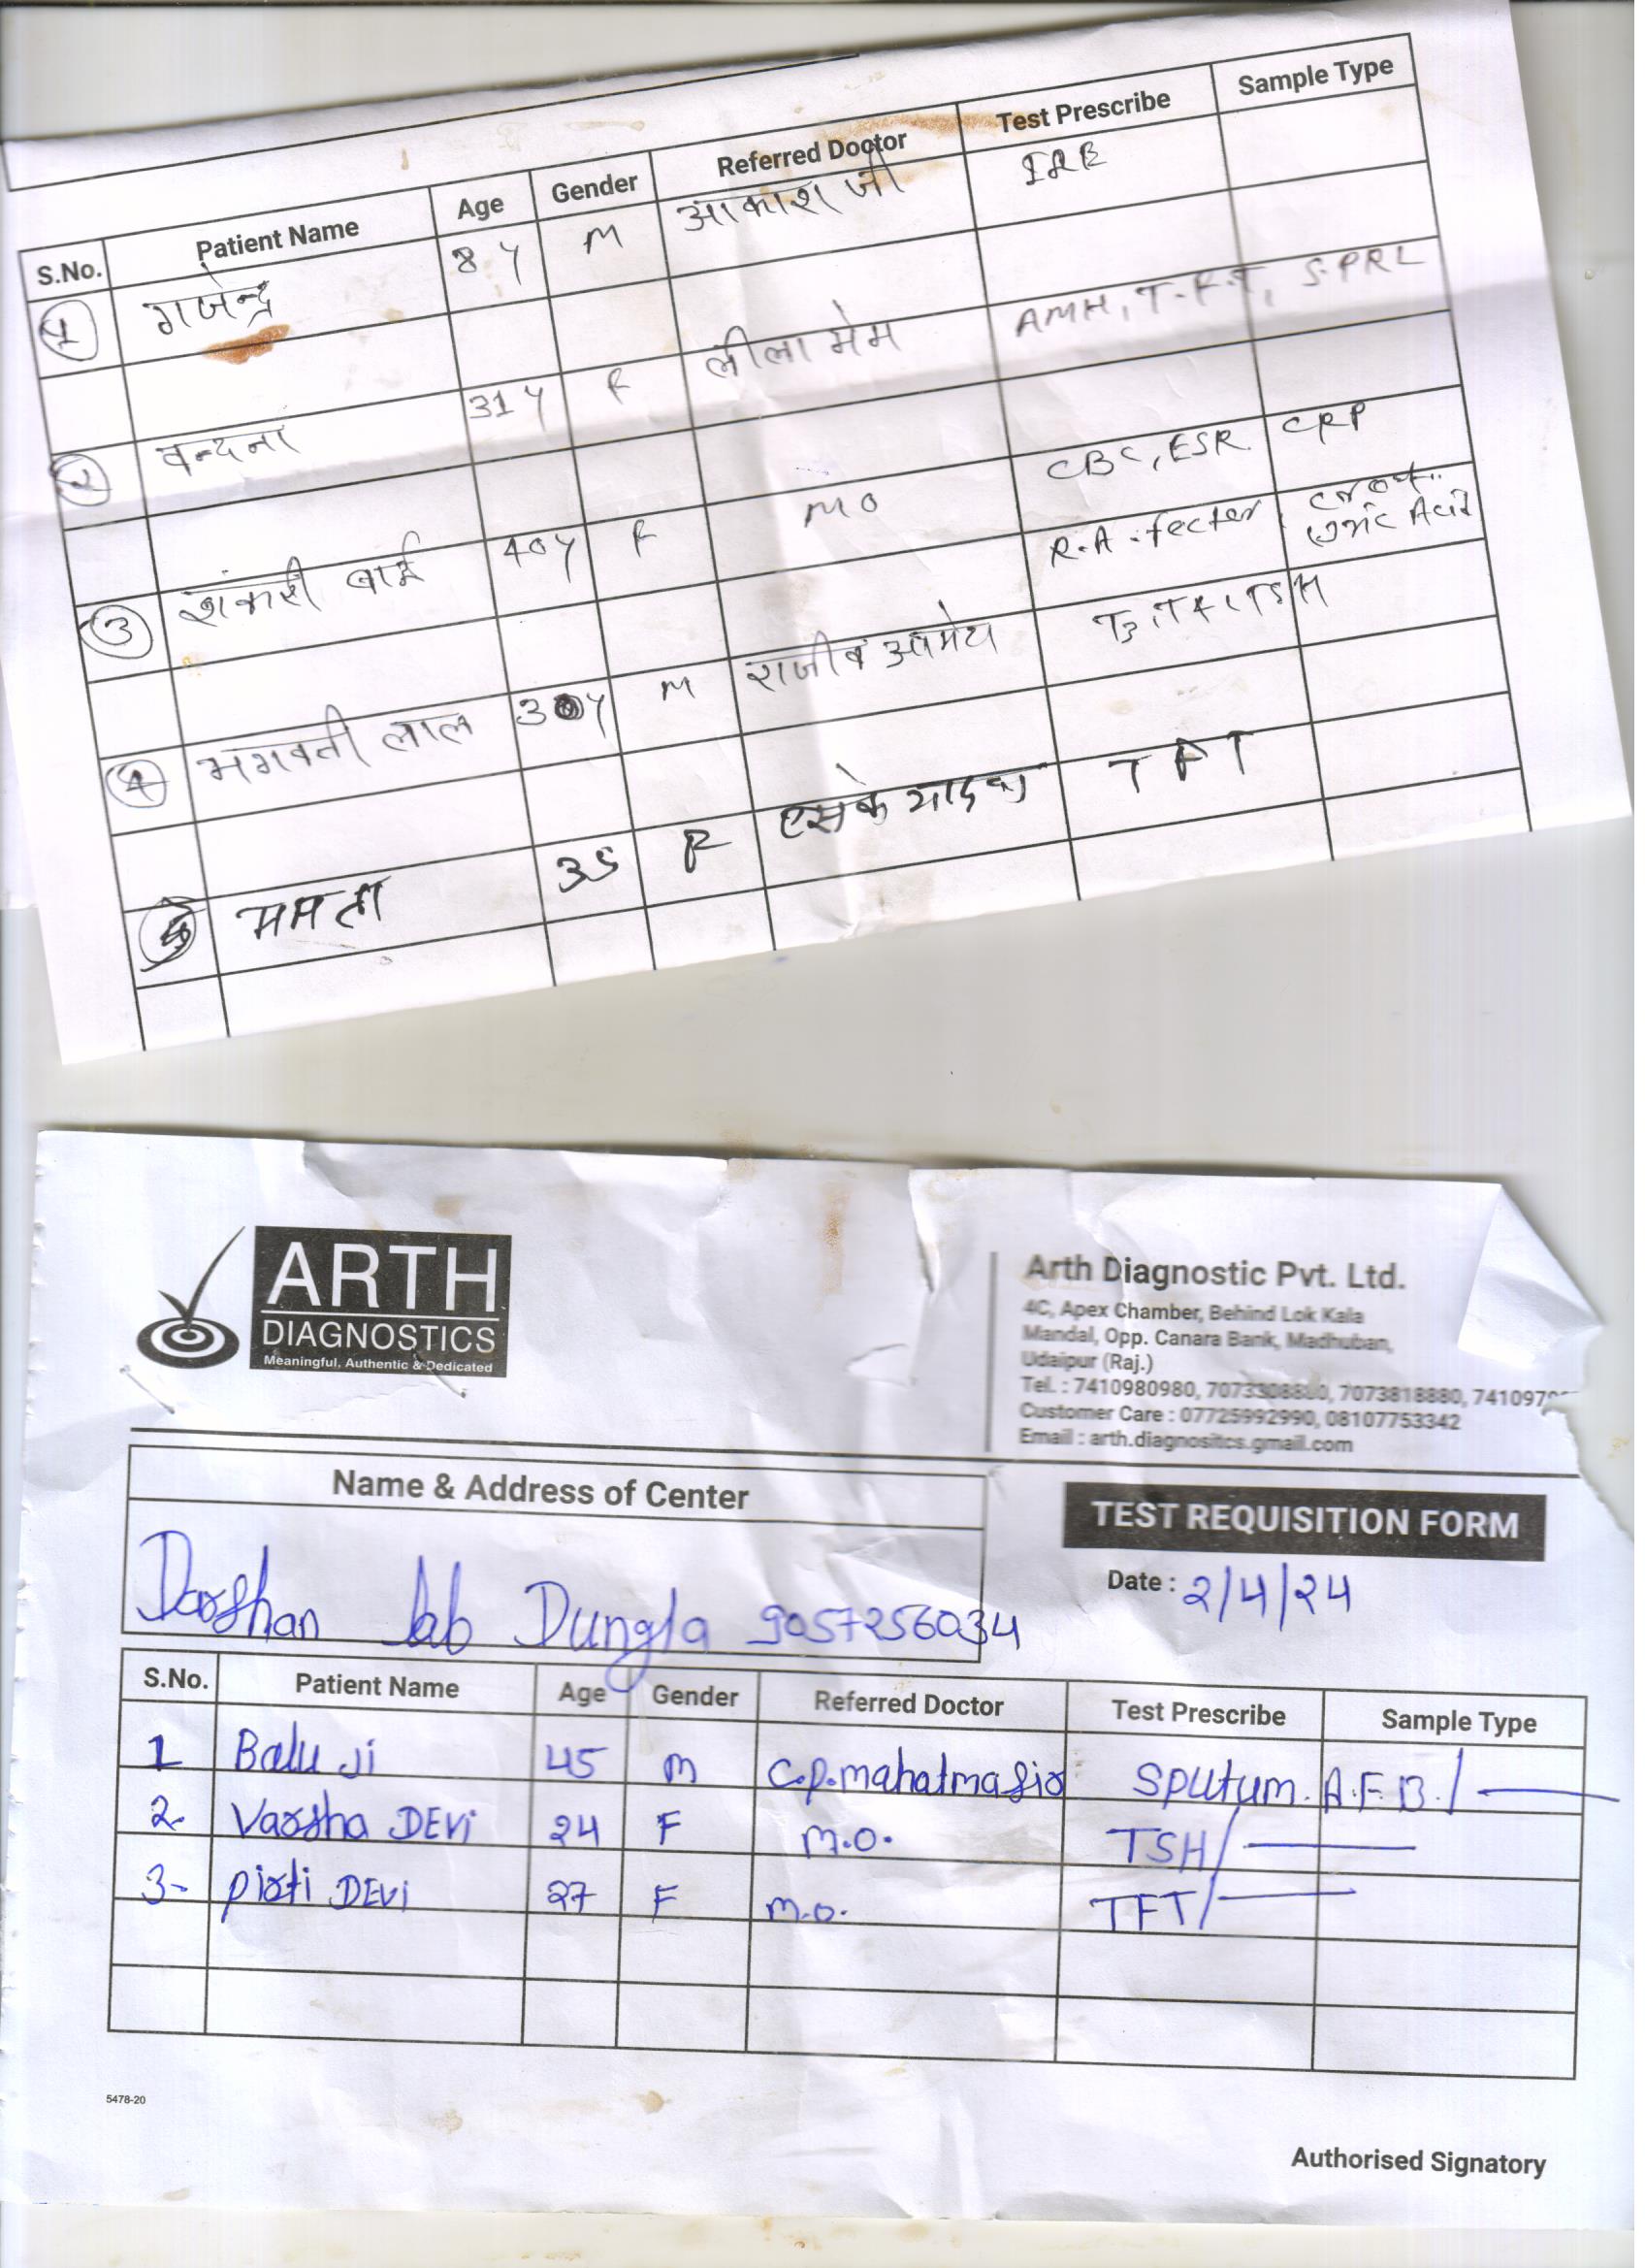 S.No. Patient Name Age Gender Referred Doctor Test Prescribe Sample Type
1 गजेन्द्र 8 y M आकाश जी
2 वन्दना 31 y F लीला मेम AMH, T.F.T, S.PRL
3 शंकारी बाई 40y F MO CBC, ESR CRP
R.A. fecter, creat.
Uric Acid
4 भगवती लाल 30y M राजीव आमेटा T3, T4, TSH
5 ममता 35 F एसके यादव TFT
ARTH
DIAGNOSTICS
Meaningful, Authentic & Dedicated
Arth Diagnostic Pvt. Ltd.
4C, Apex Chamber, Behind Lok Kala
Mandal, Opp. Canara Bank, Madhuban,
Udaipur (Raj.)
Tel. : 7410980980, 7073308880, 7073818880, 741097
Customer Care : 07725992990, 08107753342
Email : arth.diagnositcs.gmail.com
Name & Address of Center
TEST REQUISITION FORM
Darshan lab Dungla 9057256034
Date : 2/4/24
S.No. Patient Name Age Gender Referred Doctor Test Prescribe Sample Type
1 Balu Ji 45 M C.P. mahatma sir Sputum. A.F.B./
2- Varsha DEVi 24 F M.O. TSH/
3- Pirti DEVi 27 F M.O. TFT/
5478-20
Authorised Signatory